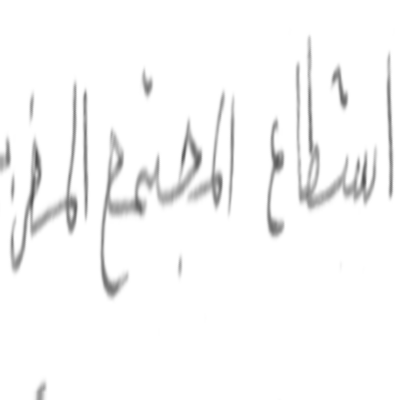 استطاع المجتمع المغربي